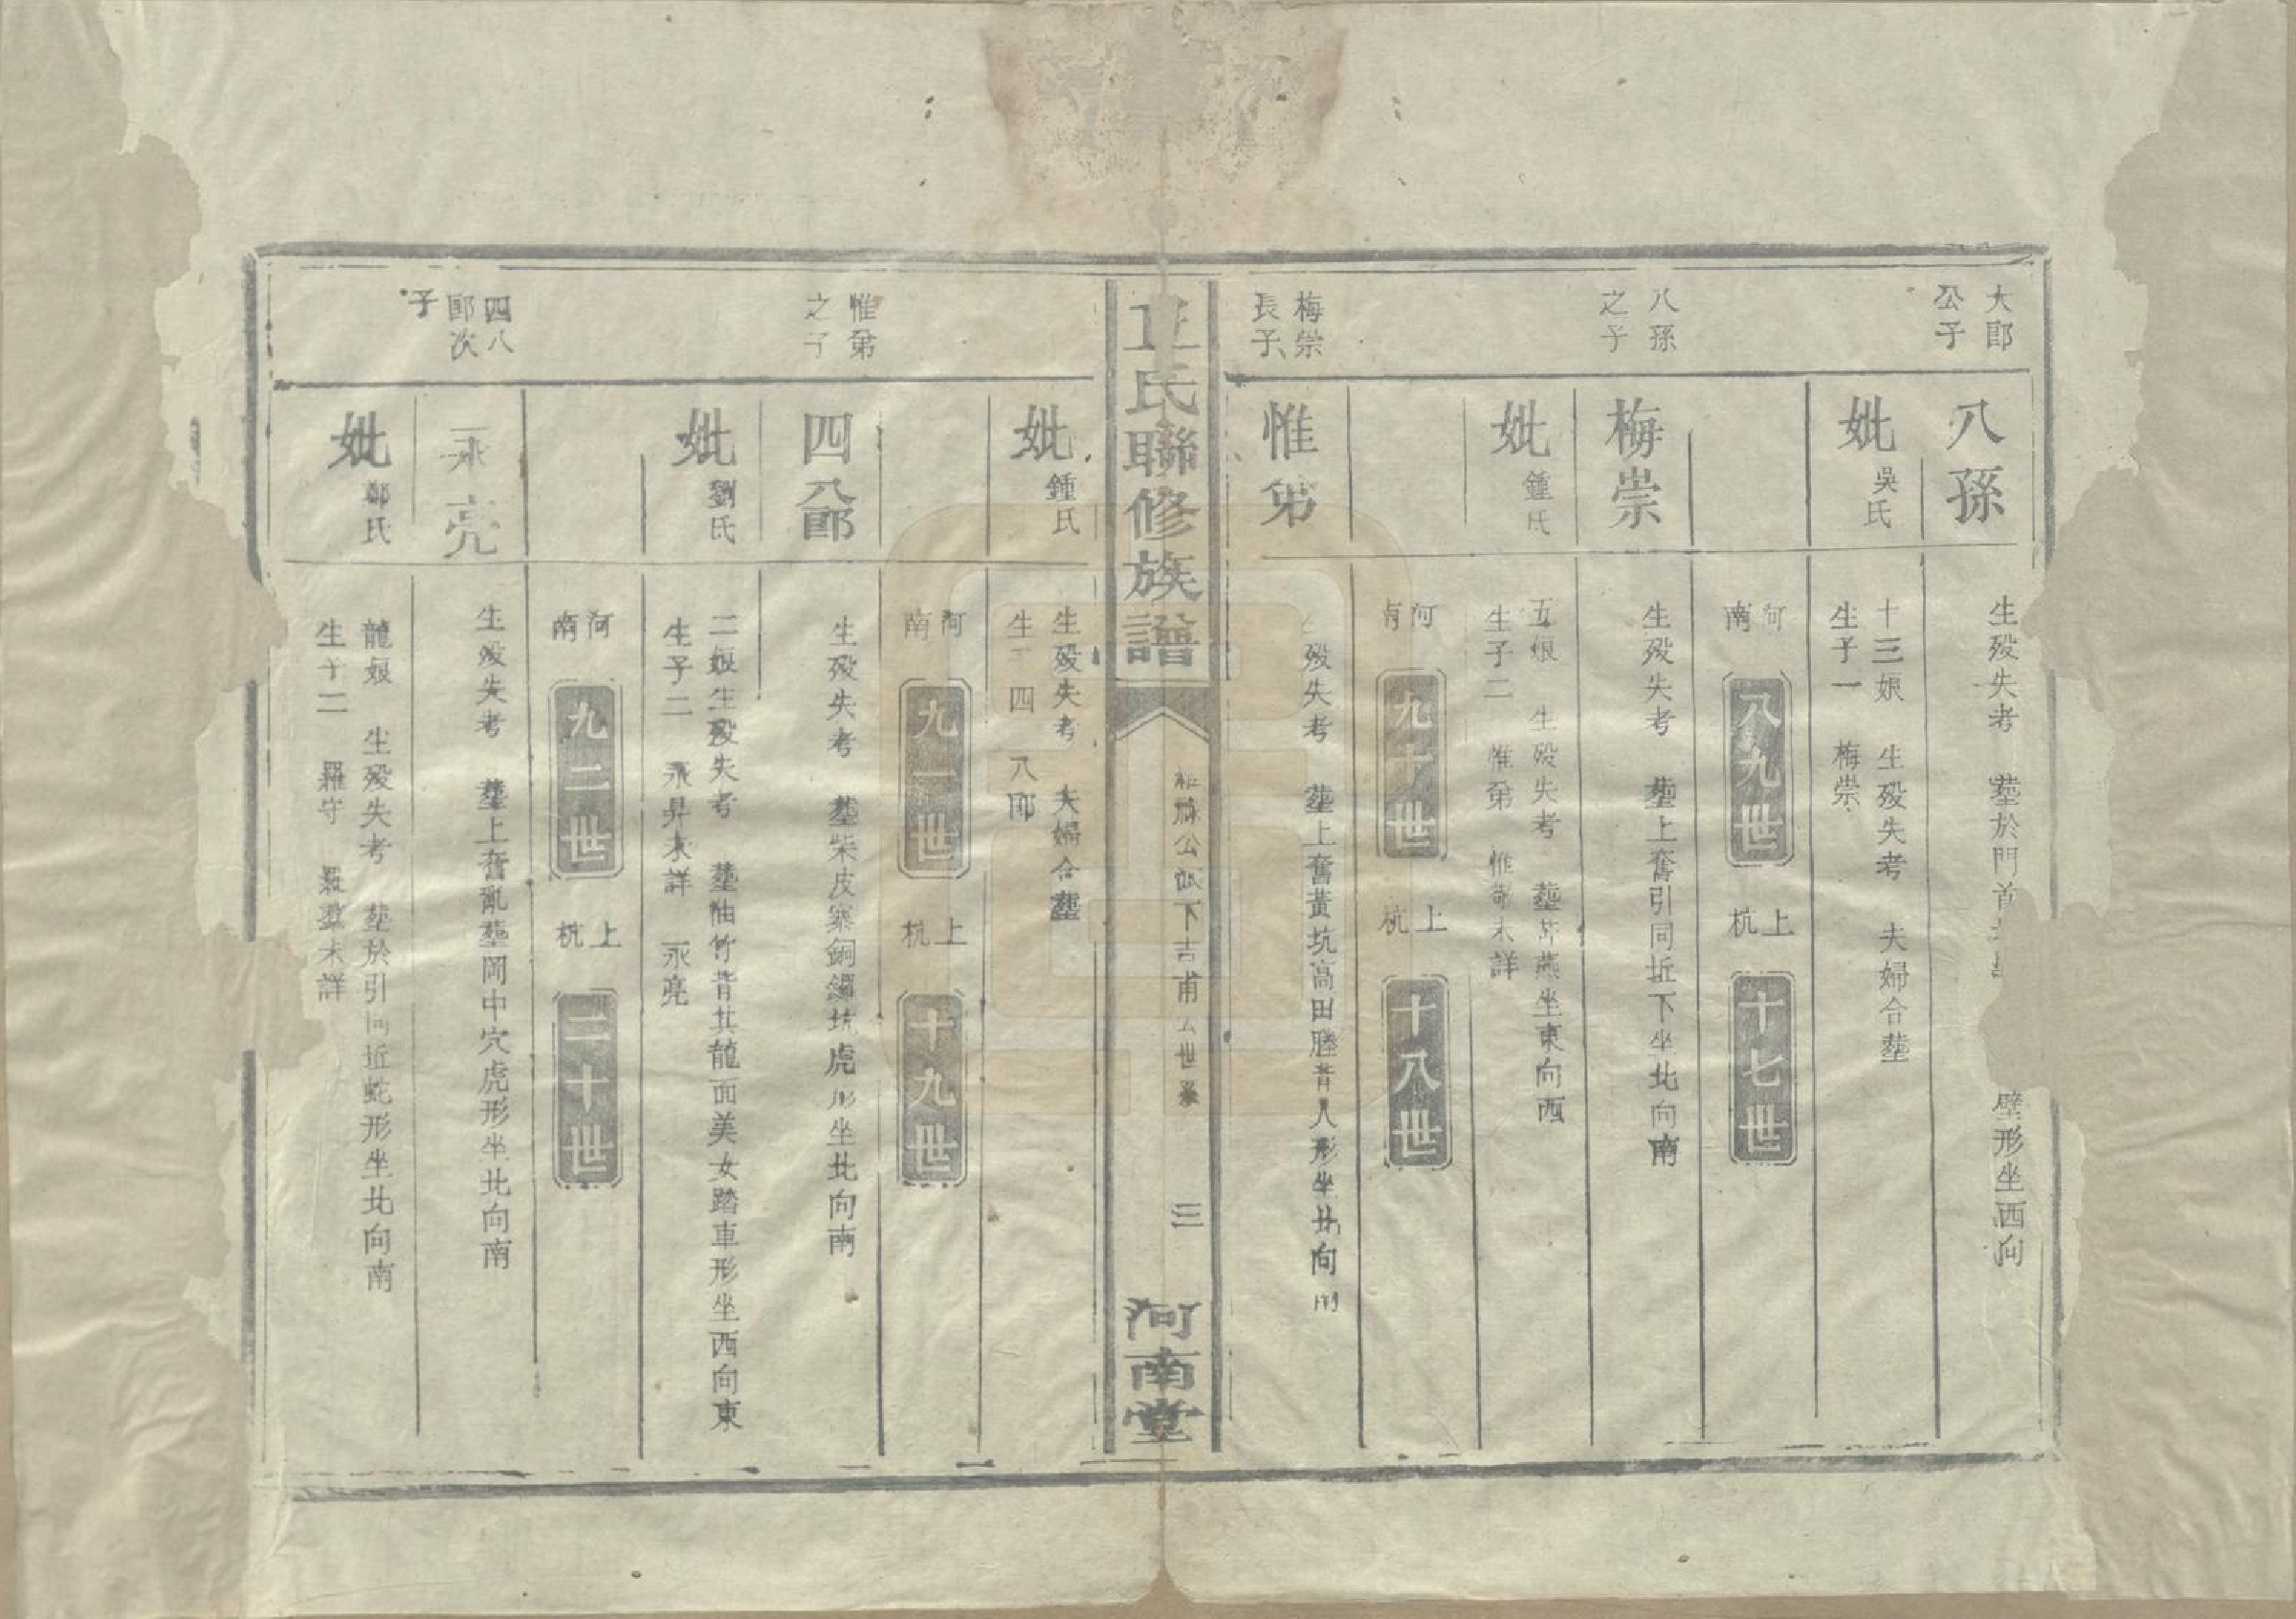 大郎
公子
八孫
生殁失考 塟於門首
壁形坐西向
妣 吳氏
十三娘 生殁失考 夫婦合塟
生子一 梅崇
河南 八九世 上杭 十七世
八孫
之子
梅崇
生殁失考 塟上奮引同坵下坐北向南
妣 鍾氏
五娘 生殁失考 坐東向西
生子二 惟弟 未詳
河南 九十世 上杭 十八世
梅崇
長子
惟弟
殁失考 塟上奮黃坑高田塍背人形坐北向
氏聯修族譜
公 下吉甫公世系
三
河南堂
妣 鍾氏
生殁失考 夫婦合塟
生子 四八郎
河南 九一世 上杭 十九世
惟弟
之子
四八郎
生殁失考 塟柴皮寨銅鑼坑虎形坐北向南
妣 劉氏
二娘生殁失考 塟油竹背 龍面美女踏車形坐西向東
生子二 永昇未詳 永亮
河南 九二世 上杭 二十世
四八
郎次
子
永亮
生殁失考 塟上奮亂塟岡中穴虎形坐北向南
妣 鄭氏
龍娘 生殁失考 塟於引同坵蛇形坐北向南
生子二 羅守 未詳